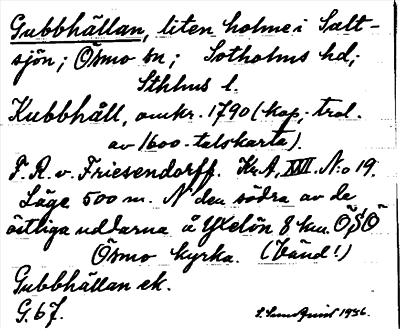 Gubbhällan, liten holme i Salt-
sjön; Ösmo sn; Sotholms hd;
Sthlms l.
Kubbhäll, omkr. 1790 (kop. trol.
av 1600-talskarta).
F. R. v. Friesendorff. Kr. A. XVII. No 19.
Läge 500 m. N den södra av de
östliga uddarna å Yxelön 8 km. ÖSÖ
Ösmo kyrka. (Vänd!)
Gubbhällan ek.
G. 67.
1936.